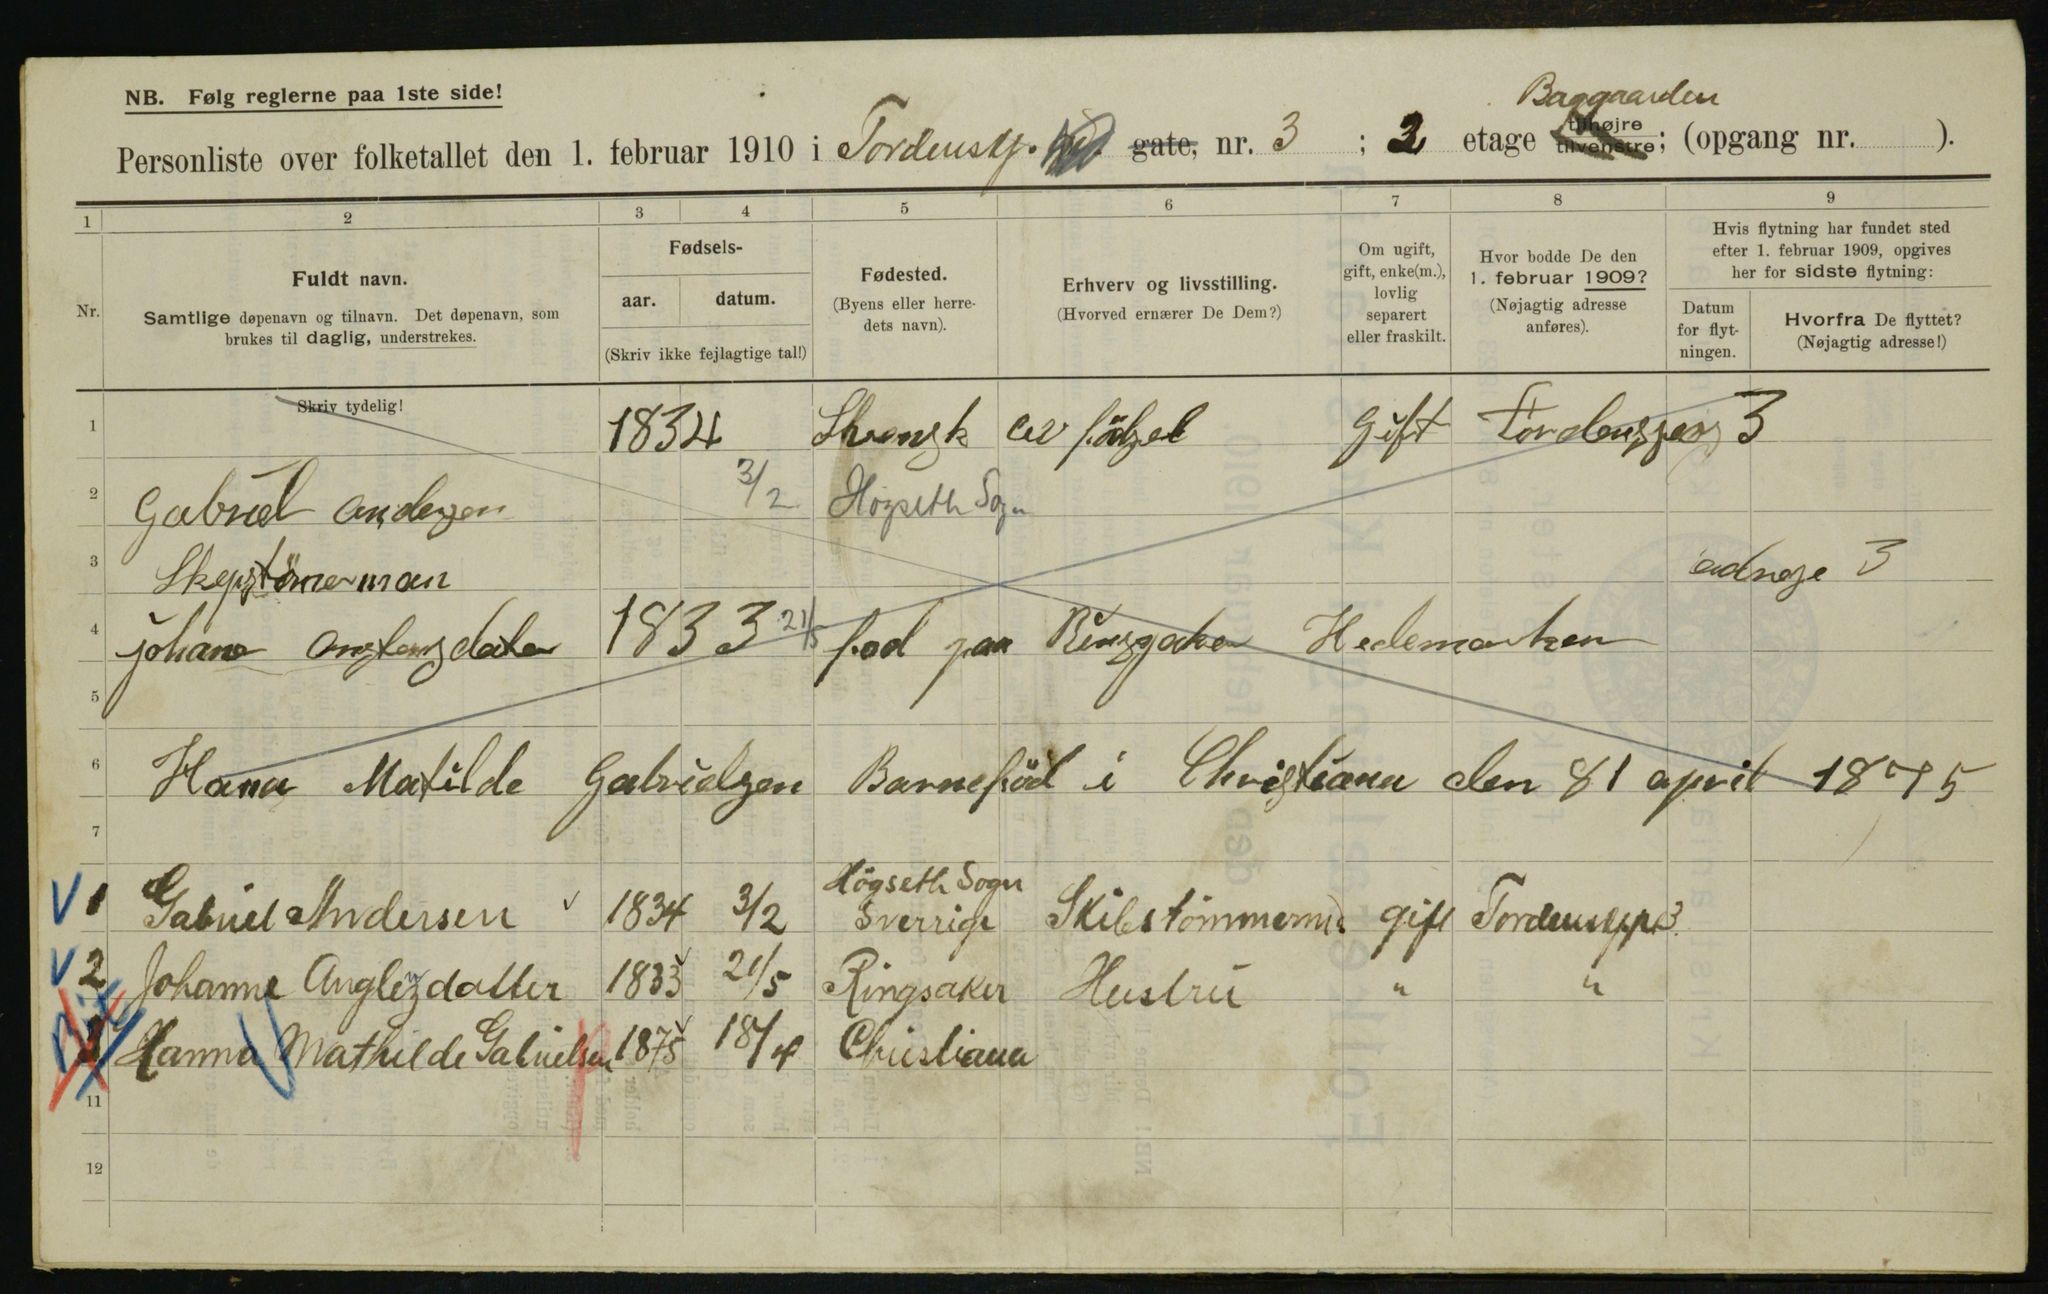 NB. Følg reglerne paa 1ste side!
Baggaarden
Personliste over folketallet den 1. februar 1910 i Tordenskj. gate, nr. 3 ; 2 etage tilhøjre tilvenstre; (opgang nr. ).
1 2 3 4 5 6 7 8 9
Nr.
Fuldt navn.
Samtlige døpenavn og tilnavn. Det døpenavn, som
brukes til daglig, understrekes.
Fødsels-
aar. datum.
(Skriv ikke fejlagtige tal!)
Fødested.
(Byens eller herre-
dets navn).
Erhverv og livsstilling.
(Hvorved ernærer De Dem?)
Om ugift,
gift, enke(m.),
lovlig
separert
eller fraskilt.
Hvor bodde De den
1. februar 1909?
(Nøjagtig adresse
anføres).
Hvis flytning har fundet sted
efter 1. februar 1909, opgives
her for sidste flytning:
Datum
for flyt-
ningen.
Hvorfra De flyttet?
(Nøjagtig adresse!)
Skriv tydelig!
1 1834 Svensk av födzel Gift 3
2 Gabriel Anderzen 3/2 Högseth Sogn
3 Skepztömerman 3
4 johane 1833 21/5 fod paa Hedemarken
5
6 Hana Matilde Gabrielzen Barneföd i Christiana den 81 april 1875
7
1 Gabriel Andersen 1834 3/2 Högseth Sogn Sverrige Skibstömmermd gift Tordenskpl 3.
2 Johanne Anglezdatter 1833 21/5 Ringsaker Hustru " "
Hanna Mathilde Gabrielsen 1875 18/4 Christiana
11
12